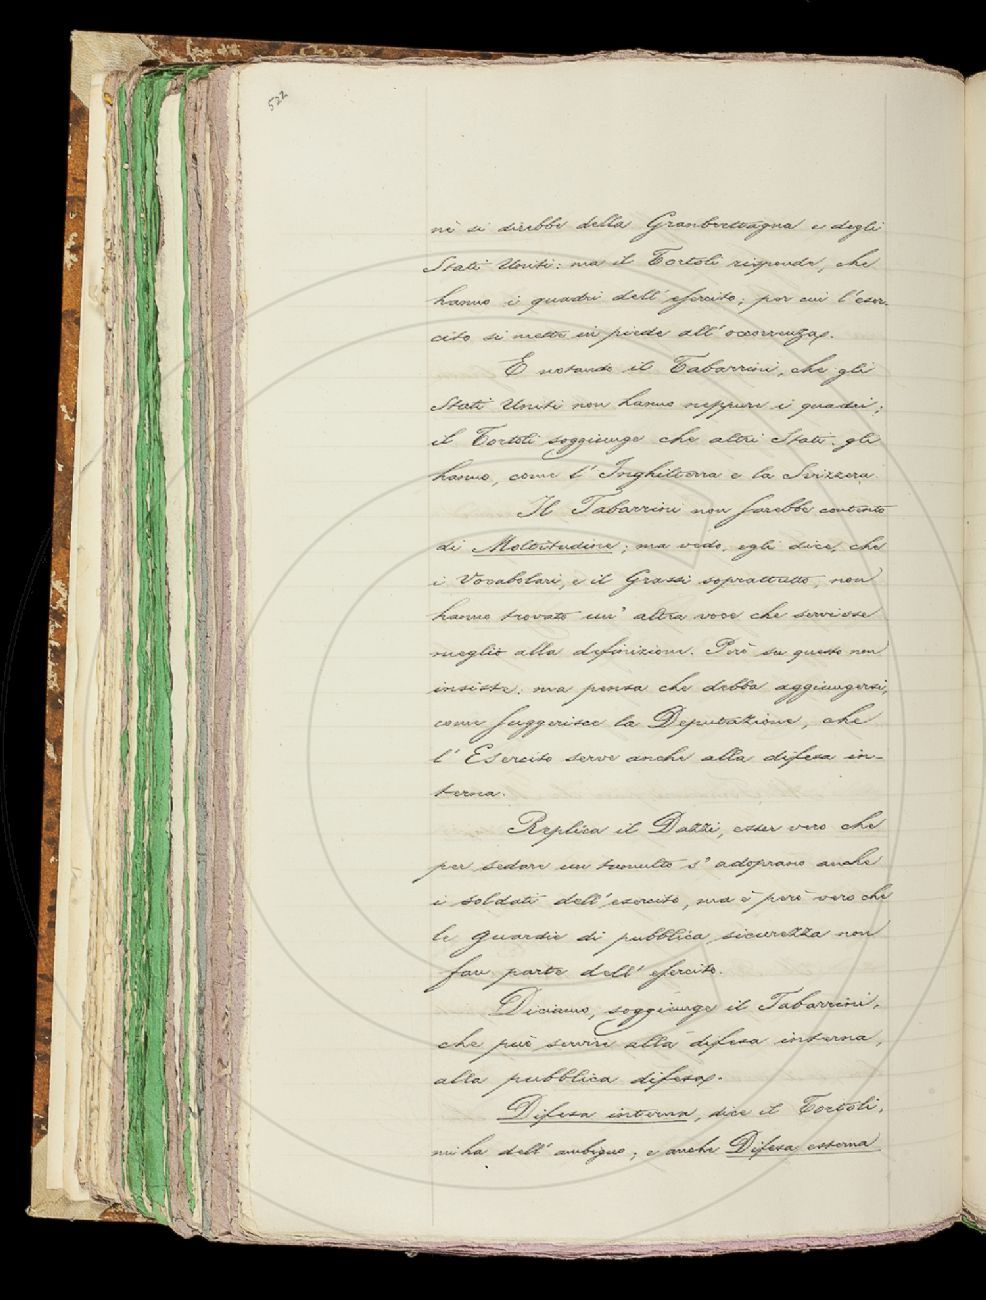 522
nè si direbbe della Granbrettagna e degli
Stati Uniti: ma il Tortoli risponde, che
hanno i quadri dell' esercito; por cui l'eser-
cito si mette in piede all' occorrenza.
E notando il Tabarrini, che gli
Stati Uniti non hanno neppure i quadri;
il Tortoli soggiunge che altri Stati gli
hanno, come l' Inghilterra e la Svizzera
Il Tabarrini non sarebbe contento
di Moltitudine; ma vedo, egli dice, che
i Vocabolari, e il Grassi soprattutto, non
hanno trovato un' altra voce che servisse
meglio alla definizione. Però su questo non
insiste: ma pensa che debba aggiungersi,
come suggerisce la Deputazione, che
l' Esercito serve anche alla difesa in-
terna.
Replica il Dazzi, esser vero che
per sedare un tumulto s' adoprano anche
i soldati dell' esercito, ma è però vero che
le guardie di pubblica sicurezza non
fan parte dell' esercito.
Diciamo, soggiunge il Tabarrini,
che può servire alla difesa interna,
alla pubblica difesa.
Difesa interna, dice il Tortoli,
mi ha dell' ambiguo; e anche Difesa esterna